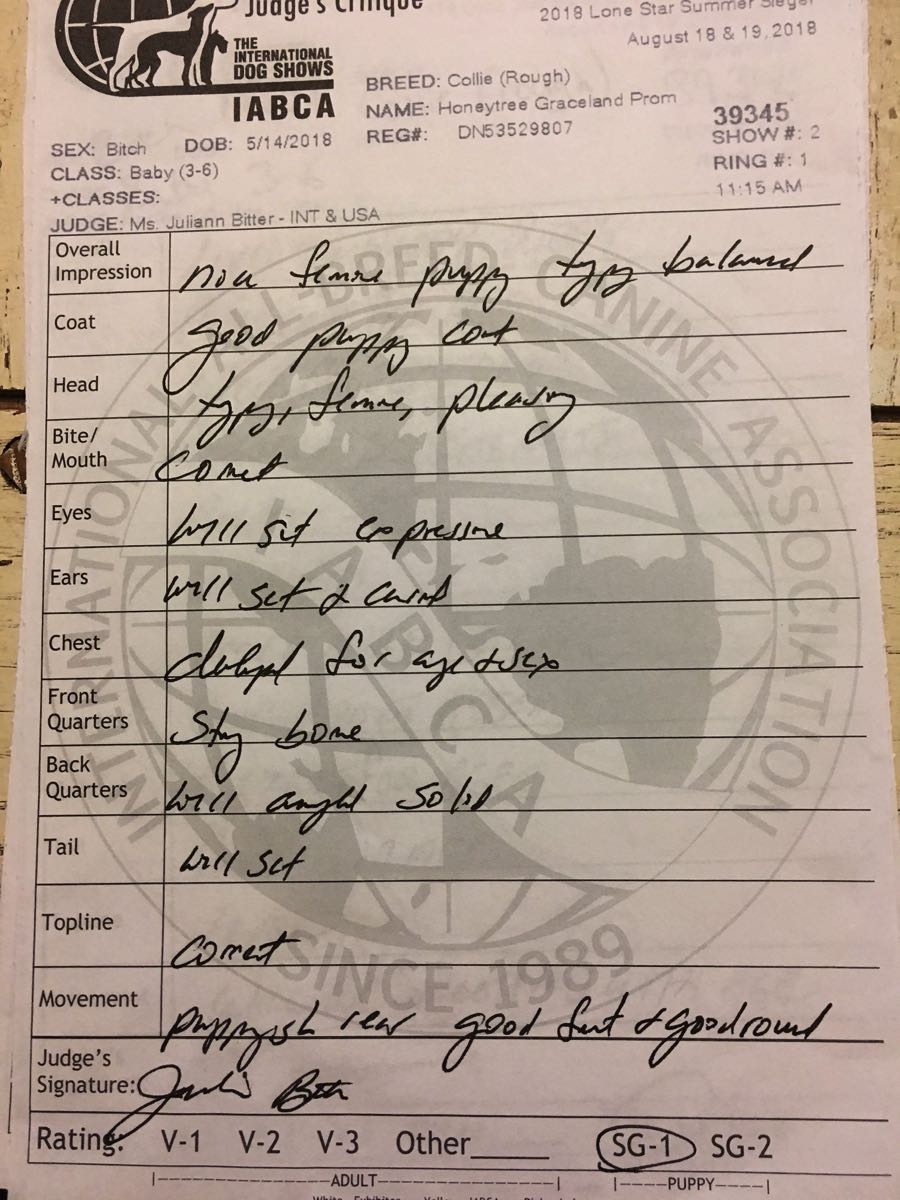 Judge's Critique
2018 Lone Star Summer Sieger
August 18 & 19, 2018
THE
INTERNATIONAL
DOG SHOWS
IABCA
BREED: Collie (Rough)
NAME: Honeytree Graceland Prom
REG#: DN53529807
39345
SHOW #: 2
RING #: 1
11:15 AM
SEX: Bitch DOB: 5/14/2018
CLASS: Baby (3-6)
+CLASSES:
JUDGE: Ms. Juliann Bitter - INT & USA
Overall
Impression femme puppy typy balanced
Coat good puppy coat
Head typy, femme, pleasing
Bite/
Mouth correct
Eyes well set expressive
Ears well set & carried
Chest developed for age & sex
Front
Quarters strong bone
Back
Quarters well angled solid
Tail well set
Topline correct
Movement puppyish rear good front & good round
Judge's
Signature:
Rating: V-1 V-2 V-3 Other______ SG-1 SG-2
ADULT PUPPY
INTERNATIONAL ALL-BREED CANINE ASSOCIATION
IABCA
SINCE 1989